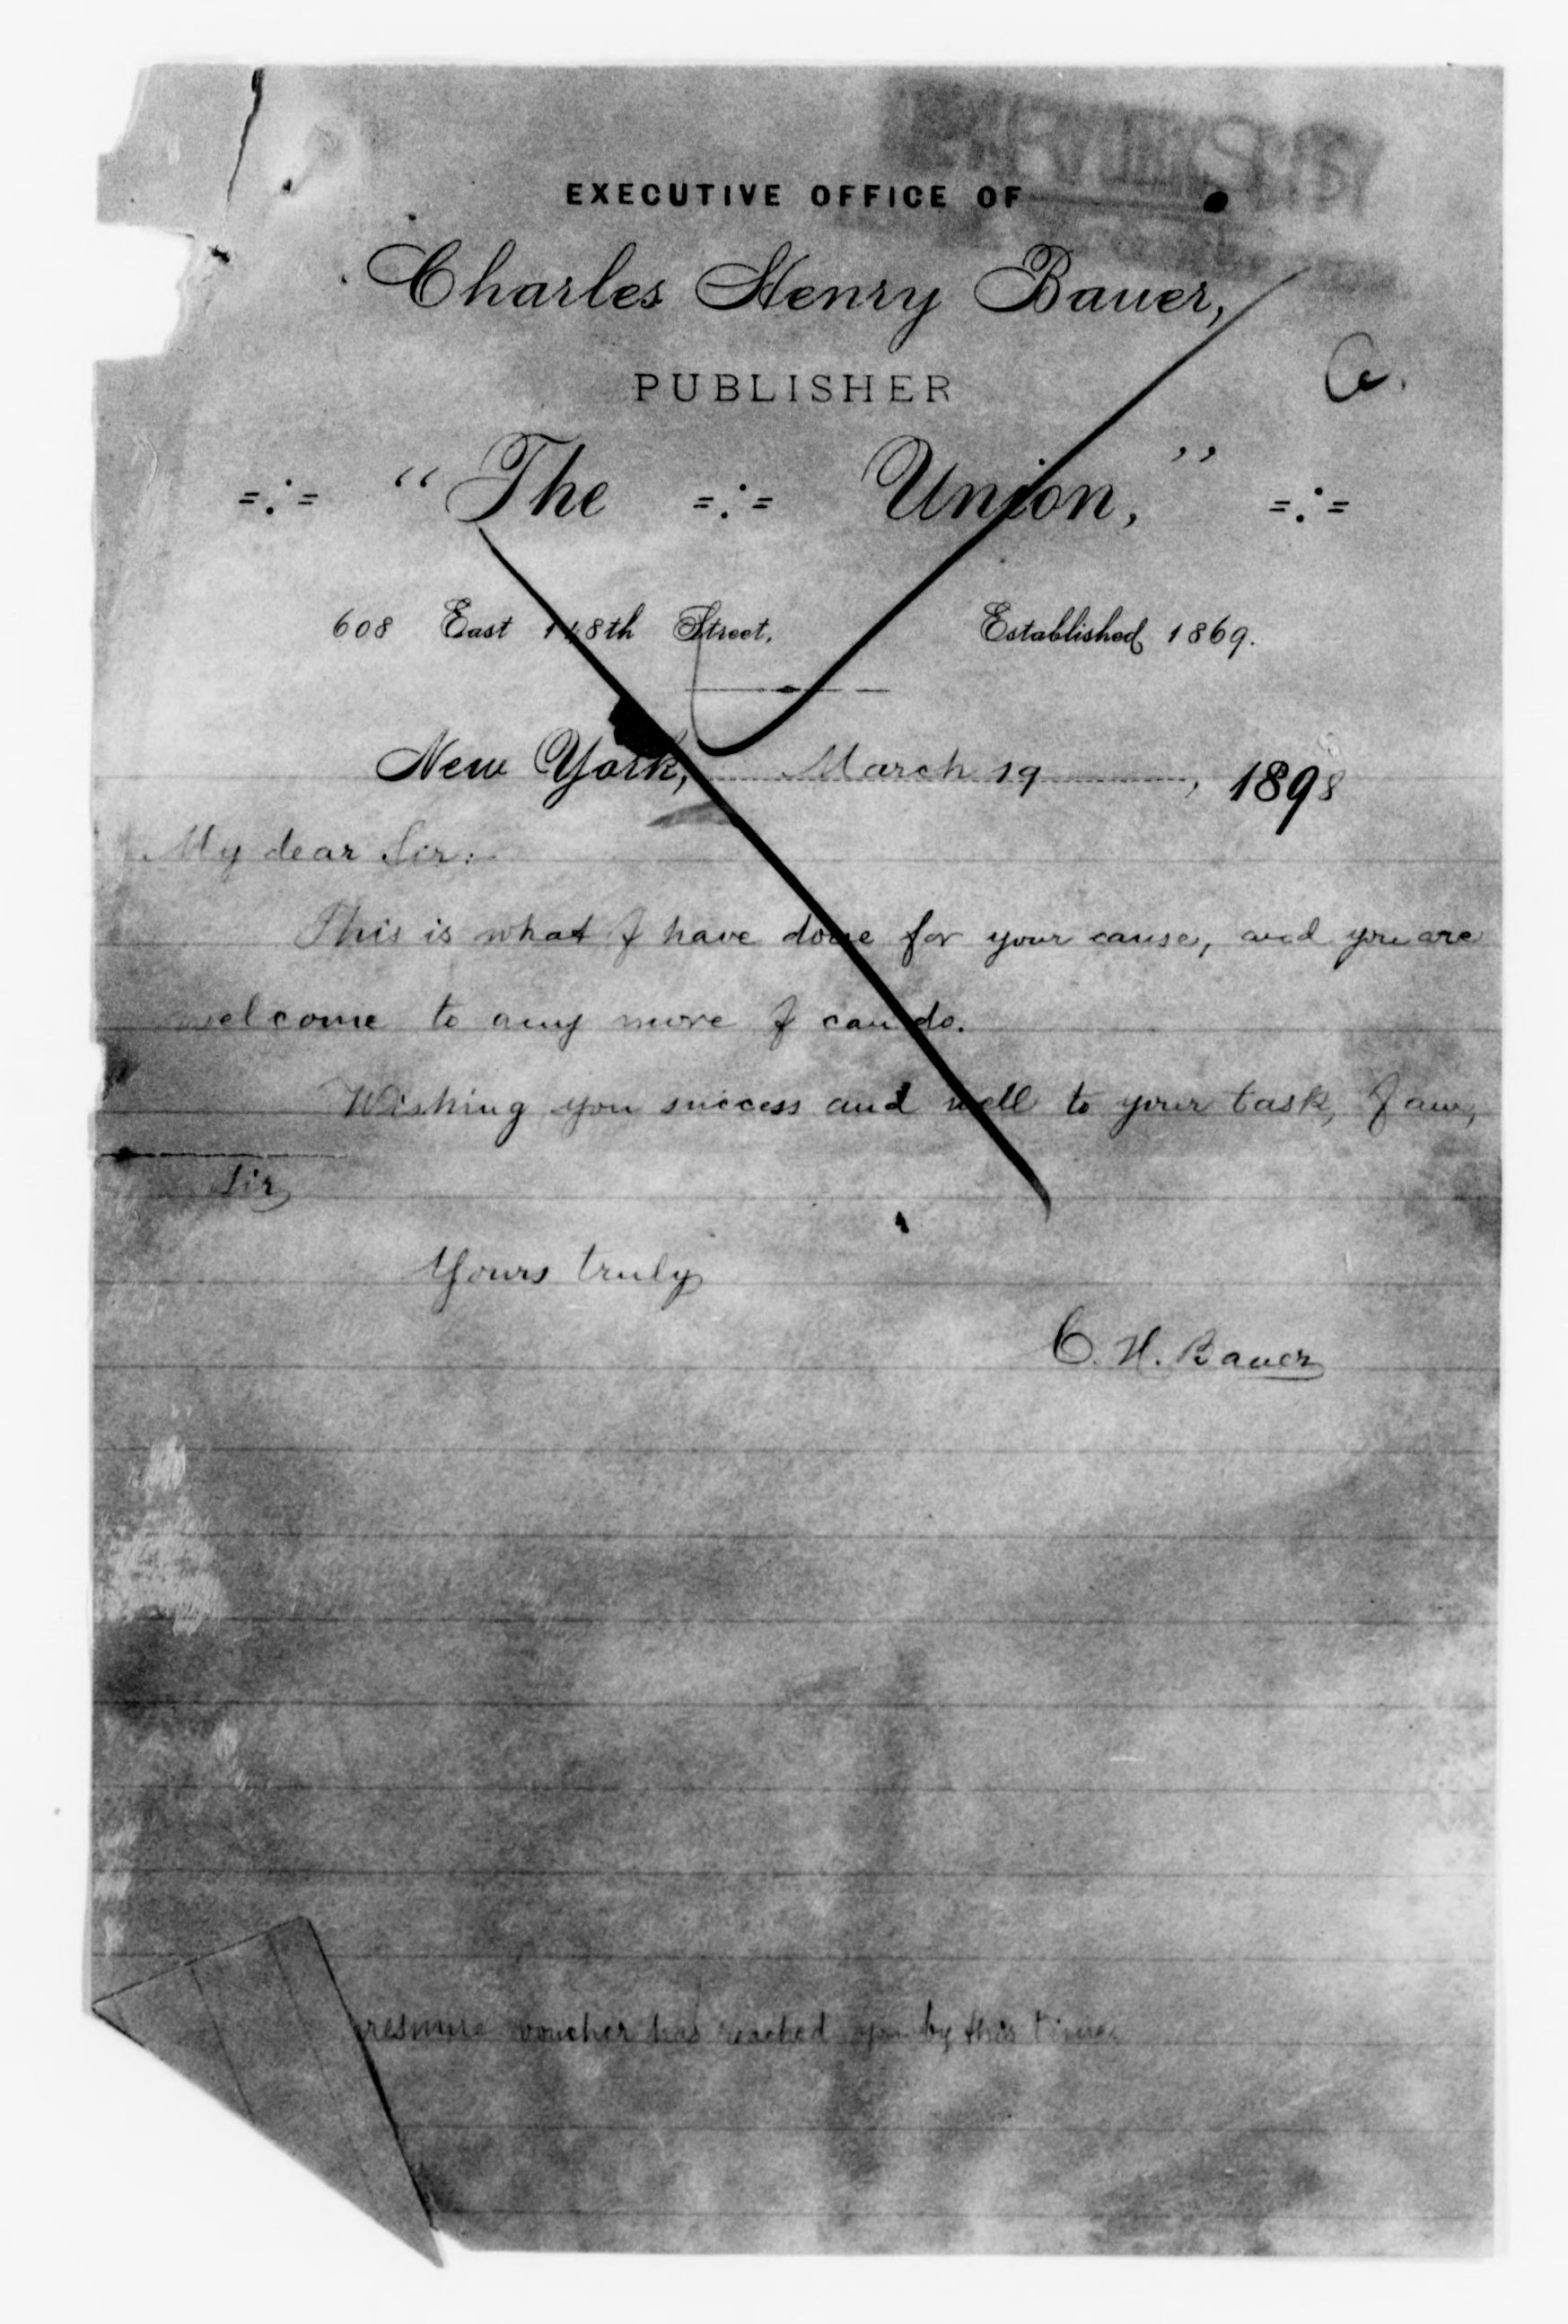 EXECUTIVE OFFICE OF
Charles Henry Bauer,
PUBLISHER
C.
=:= "The =:= Union," =:=
608 East 148th Street, Established 1869.
New York, March 19, 1898
My dear Sir:
This is what I have done for your cause, and you are
welcome to any more I can do.
Wishing you success and well to your task, I am,
Sir,
Yours truly
C. H. Bauer
voucher has reached you by this time.